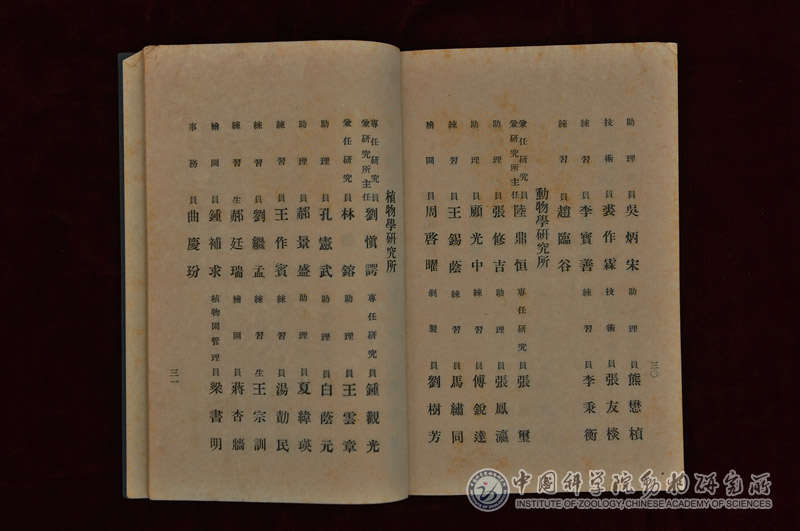 助理員吳炳宋　助理員熊懋楨
技術員裘作霖　技術員張友棪
練習員李寶善　練習員李秉衡
練習員趙臨谷
動物學研究所
專任研究員兼研究所主任陸鼎恒　專任研究員張璽
助理員張修吉　助理員張鳳瀛
助理員顧光中　練習員傅銳達
練習員王錫蔭　練習員馬繡同
繪圖員周啓曜　剝製員劉樹芳
三〇
植物學研究所
專任研究員兼研究所主任劉愼諤　專任研究員鍾觀光
兼任研究員林鎔　助理員王雲章
助理員孔憲武　助理員白蔭元
助理員郝景盛　助理員夏緯瑛
練習員王作賓　練習員湯勣民
練習員劉繼孟　練習生王宗訓
練習生郝廷瑞　繪圖員蔣杏牆
繪圖員鍾補求　植物園管理員梁書明
事務員曲慶玢
三一
中国科学院动物研究所
INSTITUTE OF ZOOLOGY, CHINESE ACADEMY OF SCIENCES